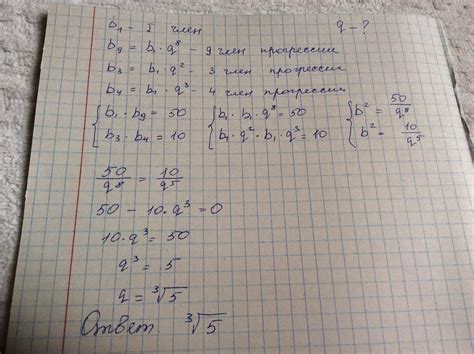 b₁ - I член q - ?
b₉ = b₁ · q⁸ - 9 член прогрессии
b₃ = b₁ · q² - 3 член прогрессии
b₄ = b₁ · q³ - 4 член прогрессии
{ b₁ · b₉ = 50 { b₁ · b₁ · q⁸ = 50 { b² = 50/q⁸
b₃ · b₄ = 10 b₁ · q² · b₁ · q³ = 10 b² = 10/q⁵
50/q⁸ = 10/q⁵
50 - 10 · q³ = 0
10 · q³ = 50
q³ = 5
q = ³√5
Ответ ³√5